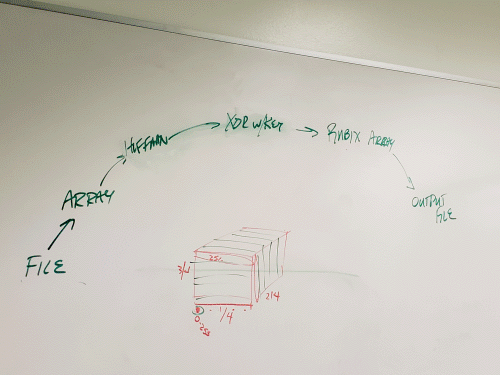 FILE
ARRAY
HUFFMAN
XOR w/KEY
RUBIX ARRAY
OUTPUT
FILE
256
1/4
0-255